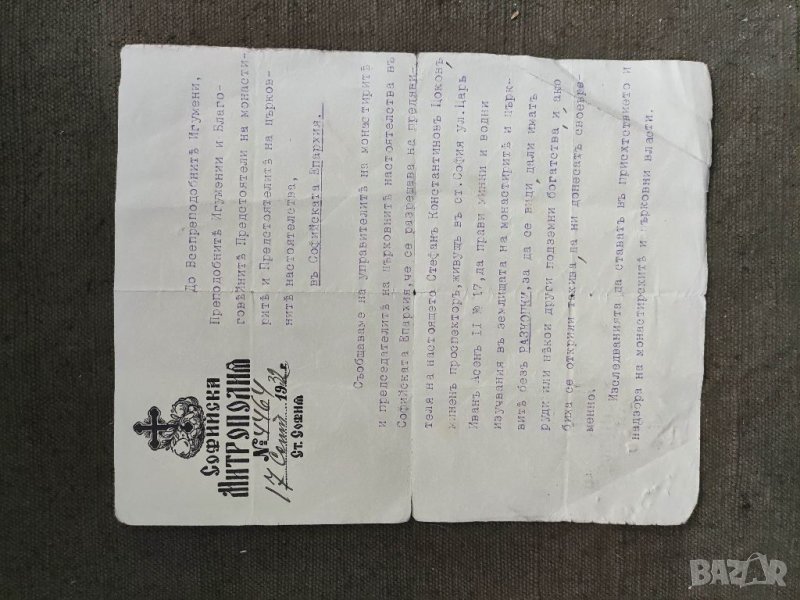 СОФИЙСКА
МИТРОПОЛИЯ
№ 4464
17 Септ. 1932 г.
Ст. София
До Всепреподобнитѣ Игумени,
Преподобнитѣ Игумении и Благо-
говѣйнитѣ Предстоятели на монасти-
ритѣ и Предстоятелитѣ на църков-
нитѣ настоятелства,
в
въ Софийската Епархия.
Съобщаваме на управителитѣ на монастиритѣ
и председателитѣ на църковнитѣ настоятелства въ
Софийската Епархия, че се разрешава на предяви-
теля на настоящето Стефанъ Константиновъ Цоковъ
миненъ проспекторъ, живущъ въ ст. София ул. Царь
Иванъ Асенъ II № 17, да прави минни и водни
изучвания въ землищата на монастиритѣ и църк-
витѣ безъ РАЗКОПКИ, за да се види, дали иматъ
руди или нѣкои други подземни богатства и ако
бѫха се открили такива, да ни донесатъ своевре-
менно.
Изследванията да ставатъ въ присѫтствието и
надзора на монастирскитѣ и църковни власти.
BAZAR